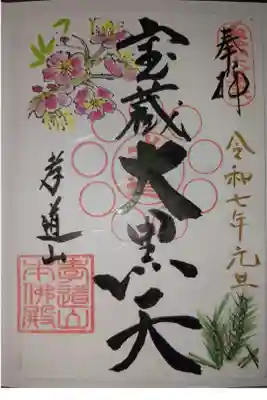 奉拝
令和七年元旦
宝蔵大黒天
孝道山
孝道山
本佛殿